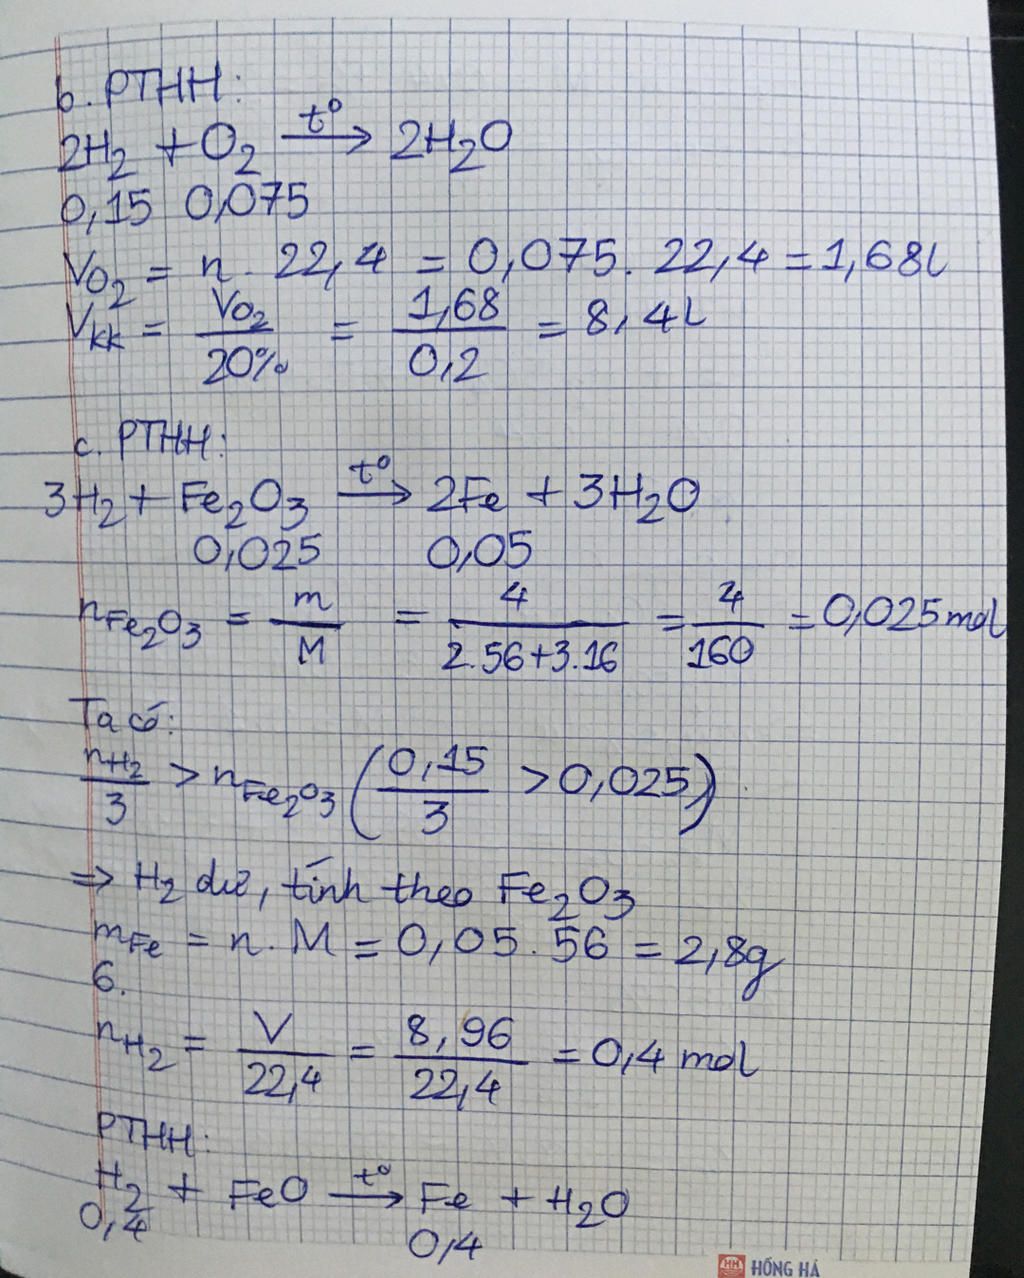 b. PTHH:
2H₂ + O₂ —t°→ 2H₂O
0,15 0,075
V_O₂ = n . 22,4 = 0,075 . 22,4 = 1,68l
V_kk = V_O₂/20% = 1,68/0,2 = 8,4l
c. PTHH:
3H₂ + Fe₂O₃ —t°→ 2Fe + 3H₂O
0,025 0,05
n_Fe₂O₃ = m/M = 4/(2.56+3.16) = 4/160 = 0,025 mol
Ta có:
n_H₂/3 > n_Fe₂O₃ (0,15/3 > 0,025)
⇒ H₂ dư, tính theo Fe₂O₃
m_Fe = n . M = 0,05 . 56 = 2,8g
6.
n_H₂ = V/22,4 = 8,96/22,4 = 0,4 mol
PTHH:
H₂ + FeO —t°→ Fe + H₂O
0,4 0,4
HH HỒNG HÀ